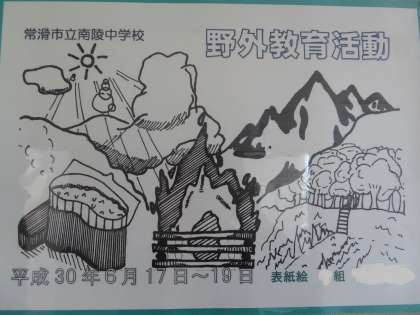 常滑市立南陵中学校
野外教育活動
平成30年6月17日～19日 表紙絵 組